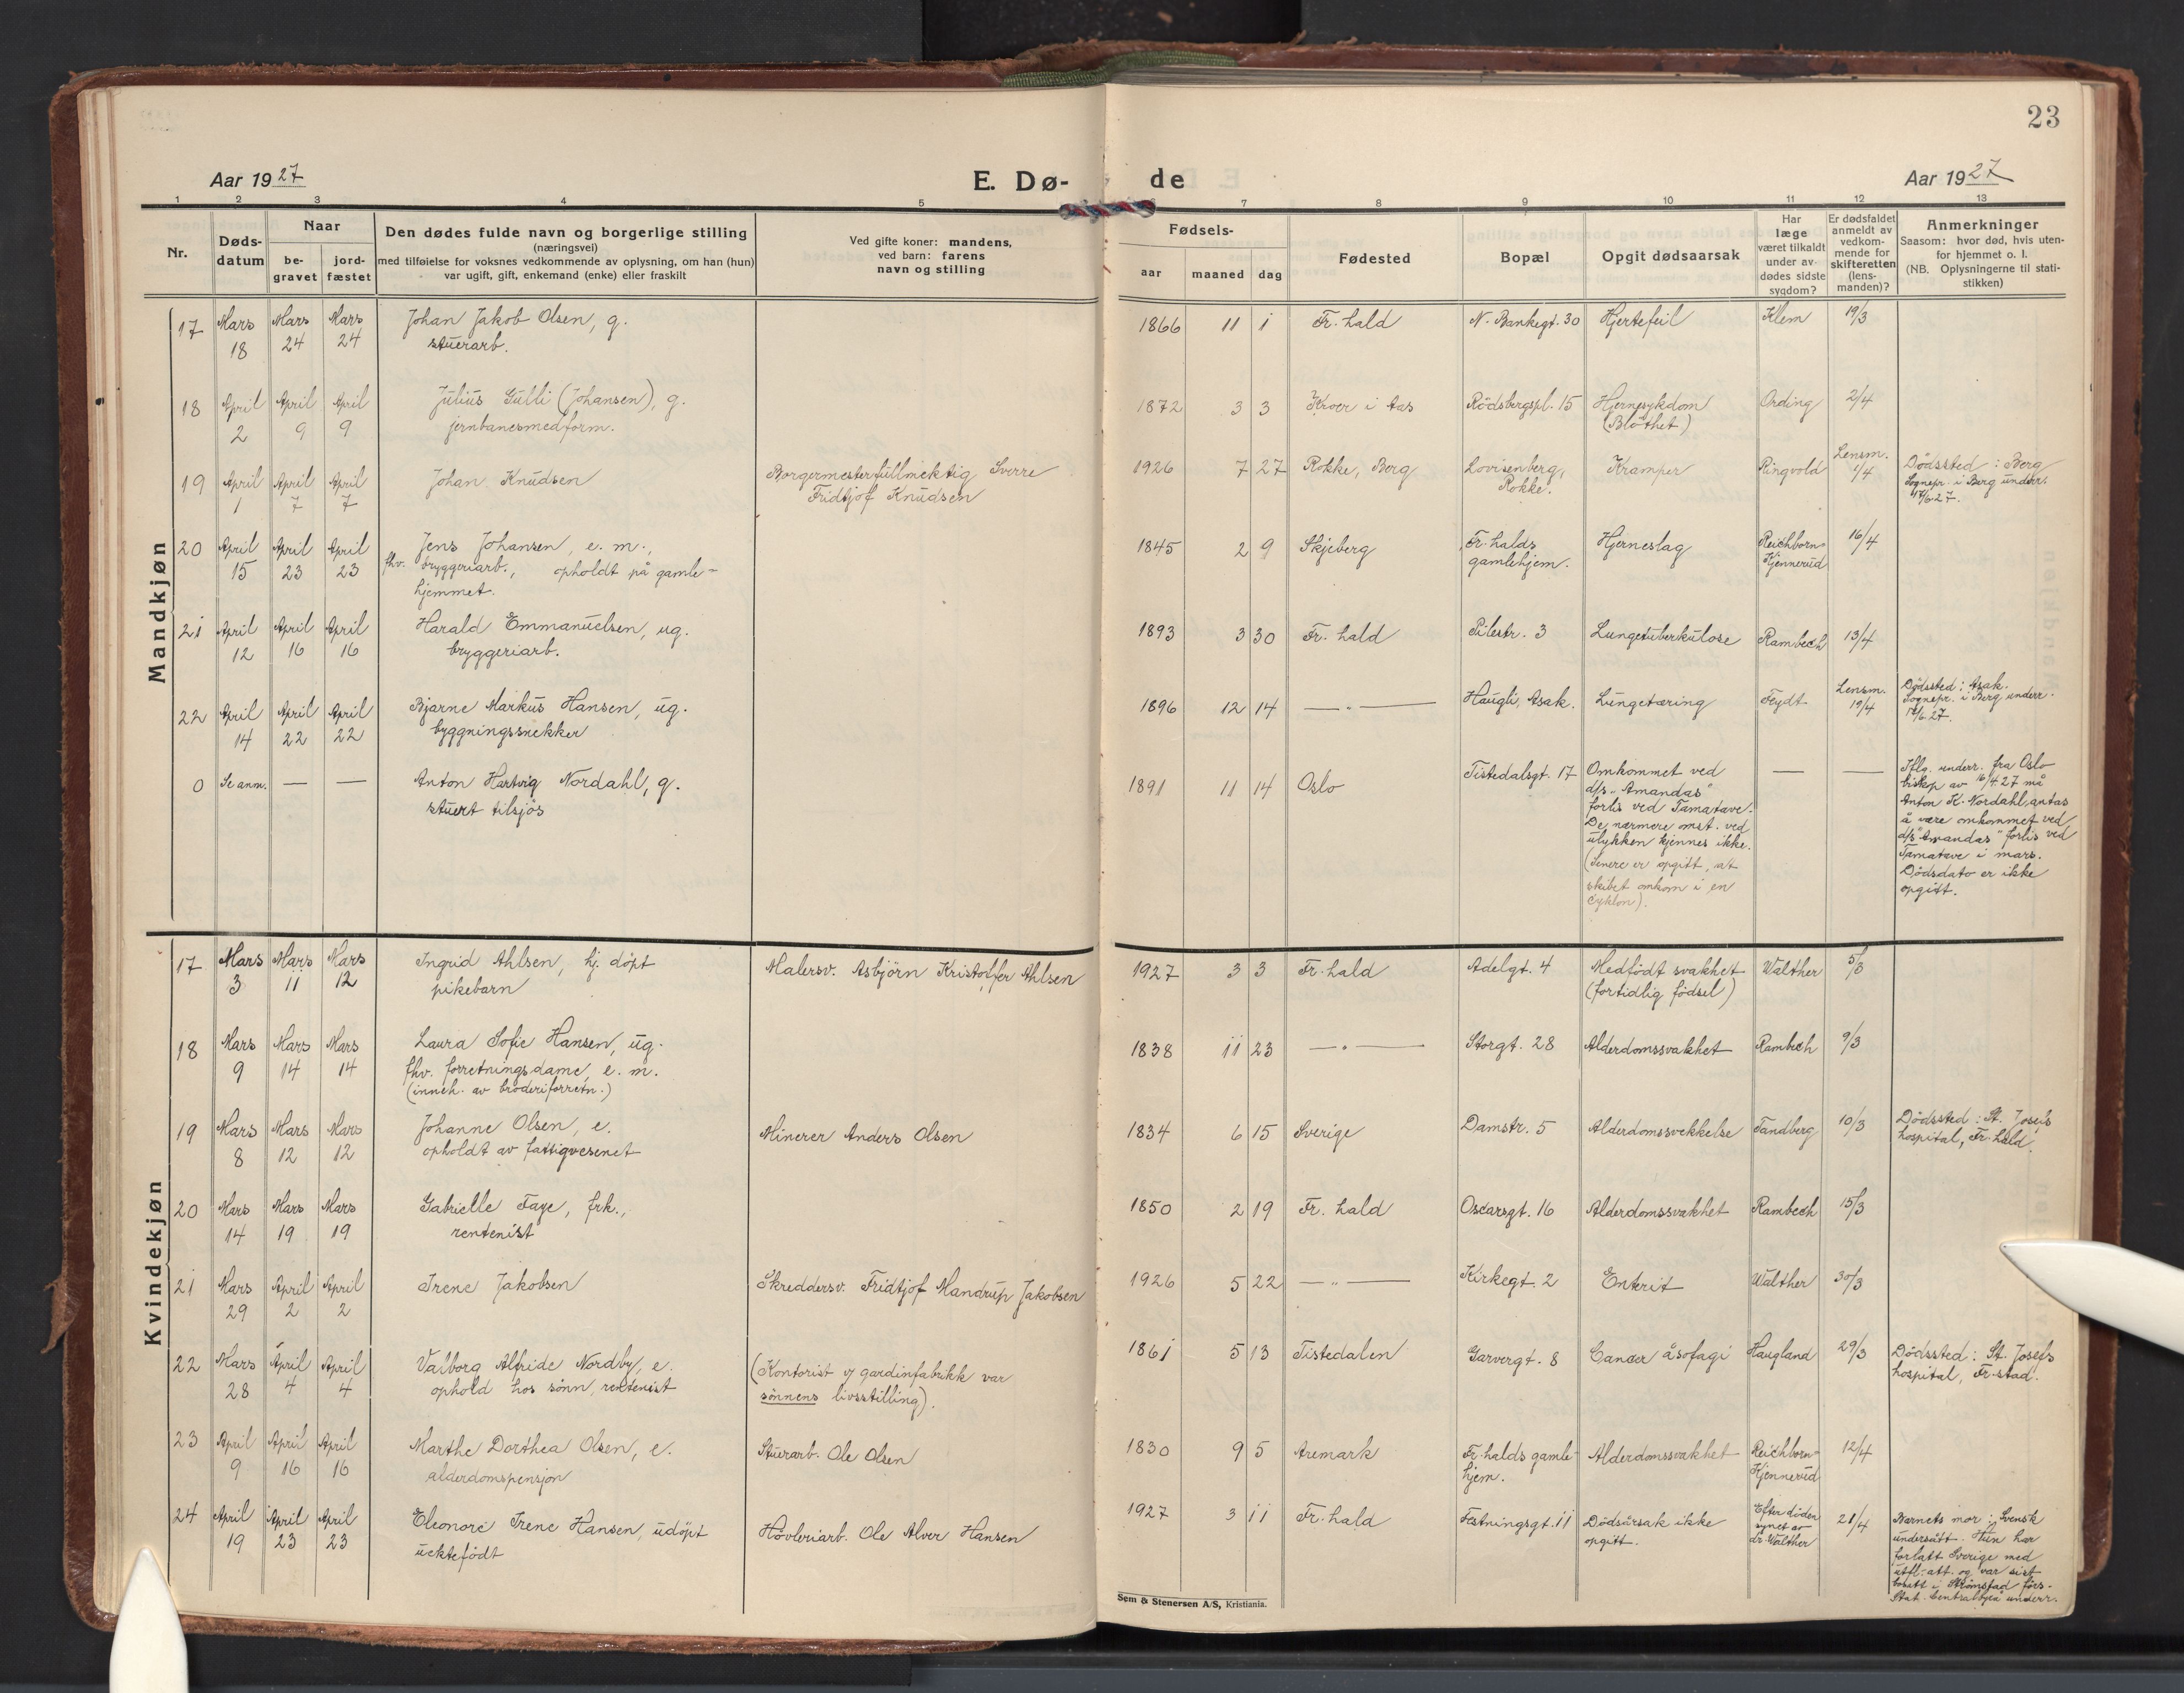 23
Aar 1927
E. Dø-
de
Aar 1927
1 2 3 4 5 7 8 9 10 11 12 13
Nr.
Døds-
datum
Naar
be-
gravet
jord-
fæstet
Den dødes fulde navn og borgerlige stilling
(næringsvei)
med tilføielse for voksnes vedkommende av oplysning, om han (hun)
var ugift, gift, enkemand (enke) eller fraskilt
Ved gifte koner: mandens,
ved barn: farens
navn og stilling
Fødsels-
aar maaned dag
Fødested
Bopæl
Opgit dødsaarsak
Har
læge
været tilkaldt
under av-
dødes sidste
sygdom?
Er dødsfaldet
anmeldt av
vedkom-
mende for
skifteretten
(lens-
manden)?
Anmerkninger
Saasom: hvor død, hvis uten-
for hjemmet o. l.
(NB. Oplysningerne til stati-
stikken)
Mandkjøn
17 Mars Mars Mars Johan Jakob Olsen, g. 1866 11 1 Fr.hald N. Bankegt. 30 Hjertefeil Klem 19/3
18 24 24 stuerarb.
18 April April April Julius Gulli (Johansen), g. 1872 3 3 Kroer i Aas Rödsbergspl. 15 Hjernesykdom Ording 2/4
2 9 9 jernbanesmedform. (Blöthet)
19 April April April Johan Knudsen Borgermesterfullmektig Sverre 1926 7 27 Rokke, Berg Lovisenberg, Kramper Ringvold Lensm. Dödssted: Berg
1 7 7 Fridtjof Knudsen Rokke. 1/4 Sognepr. i Berg underr.
17/6 27.
20 April April April Jens Johansen, e. m., 1845 2 9 Skjeberg Fr.halds Hjerneslag Reichborn- 16/4
15 23 23 fhv. bryggeriarb., opholdt på gamle- gamlehjem. Kjennerud
hjemmet.
21 April April April Harald Emmanuelsen, ug. 1893 3 30 Fr.hald Pilestr. 3 Lungetuberkulose Rambech 13/4
12 16 16 bryggeriarb.
22 April April April Bjarne Markus Hansen, ug. 1896 12 14 — " — Haugli, Asak. Lungetæring Feydt Lensm. Dödssted: Asak.
14 22 22 byggningssnekker 19/4 Sognepr. i Berg underr.
17/6 27.
0 Se anm. — — Anton Hartvig Nordahl, g. 1891 11 14 Oslo Tistedalsgt. 17 Omkommet ved — — Iflg. underr. fra Oslo
stuert tilsjös d/s "Amandas" biskop av 16/4 27 må
forlis ved Tamatave. Anton K. Nordahl, antas
De nærmere omst. ved å være omkommet ved
ulykken kjennes ikke. d/s "Amandas" forlis ved
(Senere er opgitt, at Tamatave i mars.
skibet omkom i en Dödsdato er ikke
cyklon). opgitt.
Kvindekjøn
17 Mars Mars Mars Ingrid Ahlsen, hj. döpt Malersv. Asbjörn Kristoffer Ahlsen 1927 3 3 Fr.hald Adelgt. 4 Medfödt svakhet Walther 5/3
3 11 12 pikebarn (fortidlig födsel)
18 Mars Mars Mars Laura Sofie Hansen, ug. 1838 11 23 — " — Storgt. 28 Alderdomssvakhet Rambech 9/3
9 14 14 fhv. forretningsdame, e. m.
(inneh. av broderiforretn.)
19 Mars Mars Mars Johanne Olsen, e. Minerer Anders Olsen 1834 6 15 Sverige Damstr. 5 Alderdomssvekkelse Tandberg 10/3 Dödssted: St. Josefs
8 12 12 opholdt av fattigvesenet hospital, Fr.hald.
20 Mars Mars Mars Gabrielle Faye, frk., 1850 2 19 Fr. hald Oscarsgt. 16 Alderdomssvakhet Rambech 15/3
14 19 19 rentenist
21 Mars April April Irene Jakobsen Skreddersv. Fridtjof Mandrup Jakobsen 1926 5 22 — " — Kirkegt. 2 Enterit Walther 30/3
29 2 2
22 Mars April April Valborg Alfride Nordby, e. (Kontorist v/ gardinfabrikk var 1861 5 13 Tistedalen Garvergt. 8 Cancer åsofagi Haugland 29/3 Dödssted: St. Josefs
28 4 4 ophold hos sönn, rentenist sönnens livsstilling). hospital, Fr.stad.
23 April April April Marthe Dorthea Olsen, e. Stuerarb. Ole Olsen 1830 9 5 Aremark Fr.halds gamle- Alderdomssvakhet Reichborn- 12/4
9 16 16 alderdomspensjon hjem. Kjennerud
24 April April April Eleonore Irene Hansen, udöpt Hövleriarb. Ole Alver Hansen 1927 3 11 Fr.hald Festningsgt. 11 Dödsårsak ikke Efter döden 21/4 Barnets mor: Svensk
19 23 23 uektefödt opgitt. synet av undersått. Hun har
dr. Walther forlatt Sverige med
utfl.-att. og var sist
bosatt i Strömstad förs.
Stat. Centralbyrå underr.
Sem & Stenersen A/S, Kristiania.